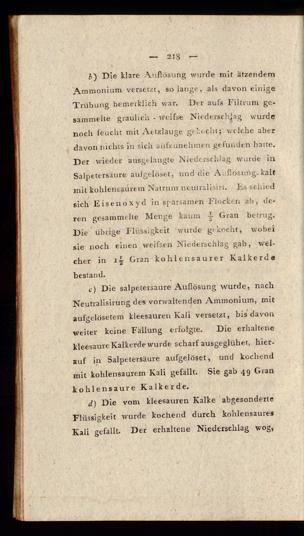 — 218 —
b) Die klare Auflösung wurde mit ätzendem
Ammonium versetzt, so lange, als davon einige
Trübung bemerklich war. Der aufs Filtrum ge-
sammelte graulich-weiſse Niederschlag wurde
noch feucht mit Aetzlauge gekocht; welche aber
davon nichts in sich aufzunehmen gefunden hatte.
Der wieder ausgelaugte Niederschlag wurde in
Salpetersäure aufgelöset, und die Auflösung kalt
mit kohlensaurem Natrum neutralisirt. Es schied
sich Eisenoxyd in sparsamen Flocken ab, de-
ren gesammelte Menge kaum ½ Gran betrug.
Die übrige Flüssigkeit wurde gekocht, wobei
sie noch einen weiſsen Niederschlag gab, wel-
cher in 1½ Gran kohlensaurer Kalkerde
bestand.
c) Die salpetersaure Auflösung wurde, nach
Neutralisirung des vorwaltenden Ammonium, mit
aufgelöstem kleesauren Kali versetzt, bis davon
weiter keine Fällung erfolgte. Die erhaltene
kleesaure Kalkerde wurde scharf ausgeglühet, hier-
auf in Salpetersäure aufgelöset, und kochend
mit kohlensaurem Kali gefällt. Sie gab 49 Gran
kohlensaure Kalkerde.
d) Die vom kleesauren Kalke abgesonderte
Flüssigkeit wurde kochend durch kohlensaures
Kali gefällt. Der erhaltene Niederschlag wog,